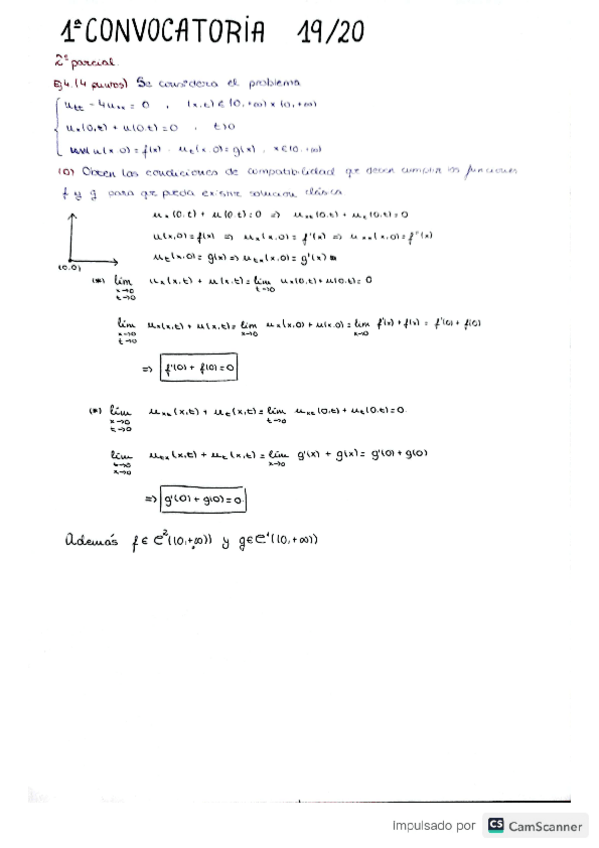 1ª CONVOCATORIA 19/20
2º parcial.
Ej 4. (4 puntos) Se considera el problema
u_tt - 4u_xx = 0 , (x,t) ∈ (0,+∞) x (0,+∞)
u_x(0,t) + u(0,t) = 0 , t>0
u(x,0) = f(x) , u_t(x,0) = g(x) , x ∈ (0,+∞)
(a) Obtén las condiciones de compatibilidad que deben cumplir las funciones
f y g para que pueda existir solución clásica
u_x(0,t) + u(0,t) = 0 => u_xt(0,t) + u_t(0,t) = 0
u(x,0) = f(x) => u_x(x,0) = f'(x) => u_xx(x,0) = f''(x)
u_t(x,0) = g(x) => u_tx(x,0) = g'(x)
(0,0)
(*) lim x→0 t→0 u_x(x,t) + u(x,t) = lim t→0 u_x(0,t) + u(0,t) = 0
lim x→0 t→0 u_x(x,t) + u(x,t) = lim x→0 u_x(x,0) + u(x,0) = lim x→0 f'(x) + f(x) = f'(0) + f(0)
=> f'(0) + f(0) = 0
(*) lim x→0 t→0 u_xt(x,t) + u_t(x,t) = lim t→0 u_xt(0,t) + u_t(0,t) = 0.
lim t→0 x→0 u_tx(x,t) + u_t(x,t) = lim x→0 g'(x) + g(x) = g'(0) + g(0)
=> g'(0) + g(0) = 0.
Además f ∈ C²((0,+∞)) y g ∈ C¹((0,+∞))
Impulsado por CS CamScanner